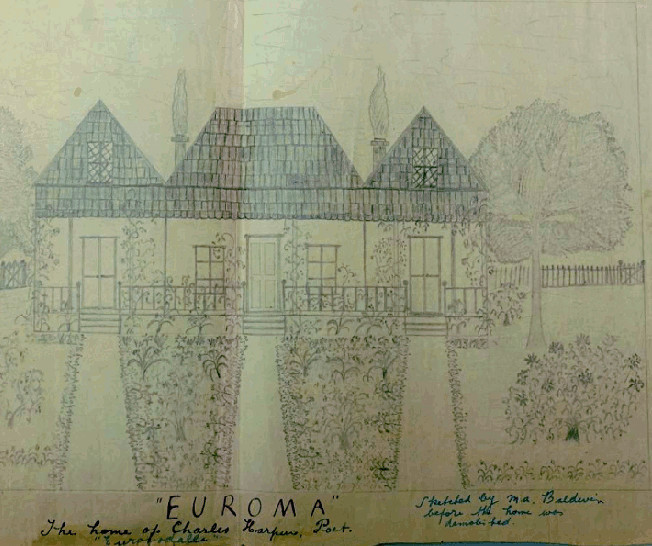 "EUROMA"
The home of Charles Harpur, Poet.
Sketched by M.A. Baldwin
before the home was
demolished.